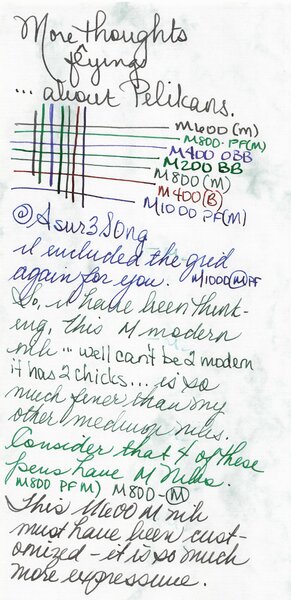 More thoughts
flyings
... about Pelikans.
M600 (M)
M800 · PF(M)
M400 OBB
M200 BB
M800 (M)
M400 (B)
M1000 PF(M)
@Asur3S0ng
I included the grid
again for you. M1000(M)PF
So, I have been think-
ing, this M modern
nib ... well can't be 2 modern
it has 2 chicks ... is so
much finer than my
other medium nibs.
Consider that 4 of these
pens have M nibs.
M800 PF M) M800-(M)
This M600 M nib
must have been cust-
omized - it is so much
more expressive.